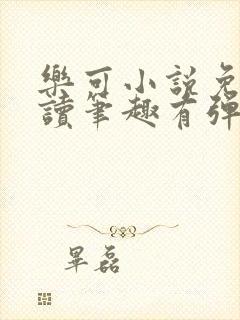 樂可小說免
讀筆趣有彈
畢磊